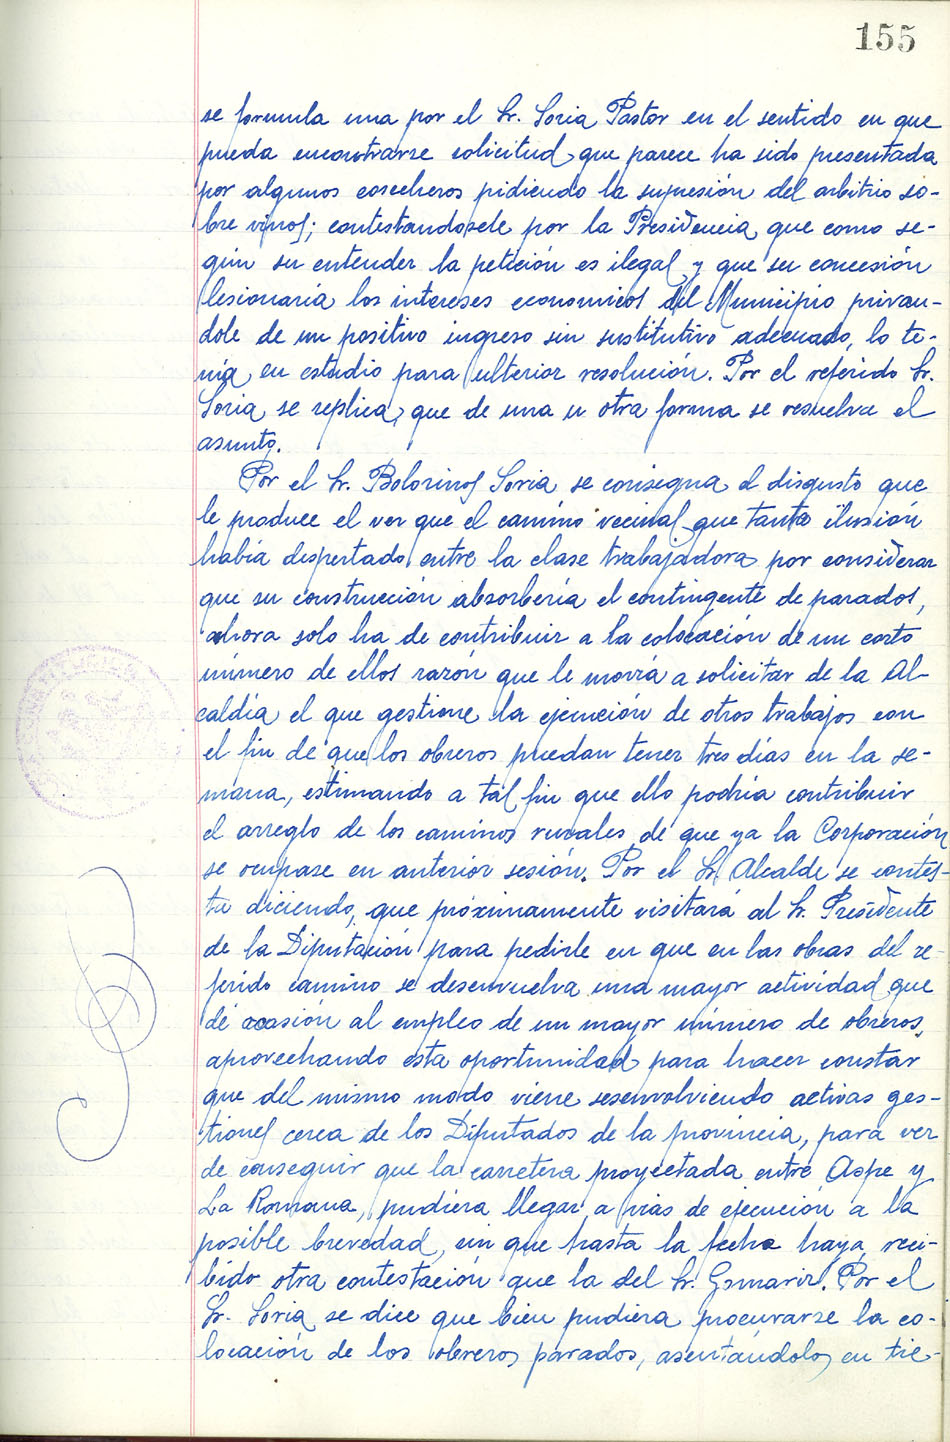 155
se formula una por el Sr. Soria Pastor en el sentido en que
pueda encontrarse solicitud que parece ha sido presentada
por algunos cosecheros pidiendo la supresión del arbitrio so-
bre vinos; contestandosele por la Presidencia que como se-
gún su entender la petición es ilegal y que su concesión
lesionaría los intereses economicos del Municipio privan-
dole de un positivo ingreso sin sustitutivo adecuado, lo te-
nia en estudio para ulterior resolución. Por el referido Sr.
Soria se replica, que de una u otra forma se resuelva el
asunto.
Por el Sr. Bolorinos Soria se consigna el disgusto que
le produce el ver que el camino vecinal que tanta ilusión
había despertado entre la clase trabajadora por considerar
que su construcción absorbería el contingente de parados,
ahora solo ha de contribuir a la colocación de un corto
número de ellos razón que le movía a solicitar de la Al-
caldía el que gestione la ejecución de otros trabajos con
el fin de que los obreros puedan tener tres días en la se-
mana, estimando a tal fin que ello podría contribuir
el arreglo de los caminos rurales de que ya la Corporación
se ocupase en anterior sesión. Por el Sr. Alcalde se contes-
ta diciendo, que próximamente visitará al Sr. Presidente
de la Diputación para pedirle en que en las obras del re-
ferido camino se desenvuelva una mayor actividad que
dé ocasión al empleo de un mayor número de obreros,
aprovechando esta oportunidad para hacer constar
que del mismo modo viene desenvolviendo activas ges-
tiones cerca de los Diputados de la provincia, para ver
de conseguir que la carretera proyectada entre Aspe y
La Romana, pudiera llegar a vias de ejecución a la
posible brevedad, sin que hasta la fecha haya reci-
bido otra contestación que la del Sr. Por el
Sr. Soria se dice que bien pudiera procurarse la co-
locación de los obreros parados, asentándolos en tie-